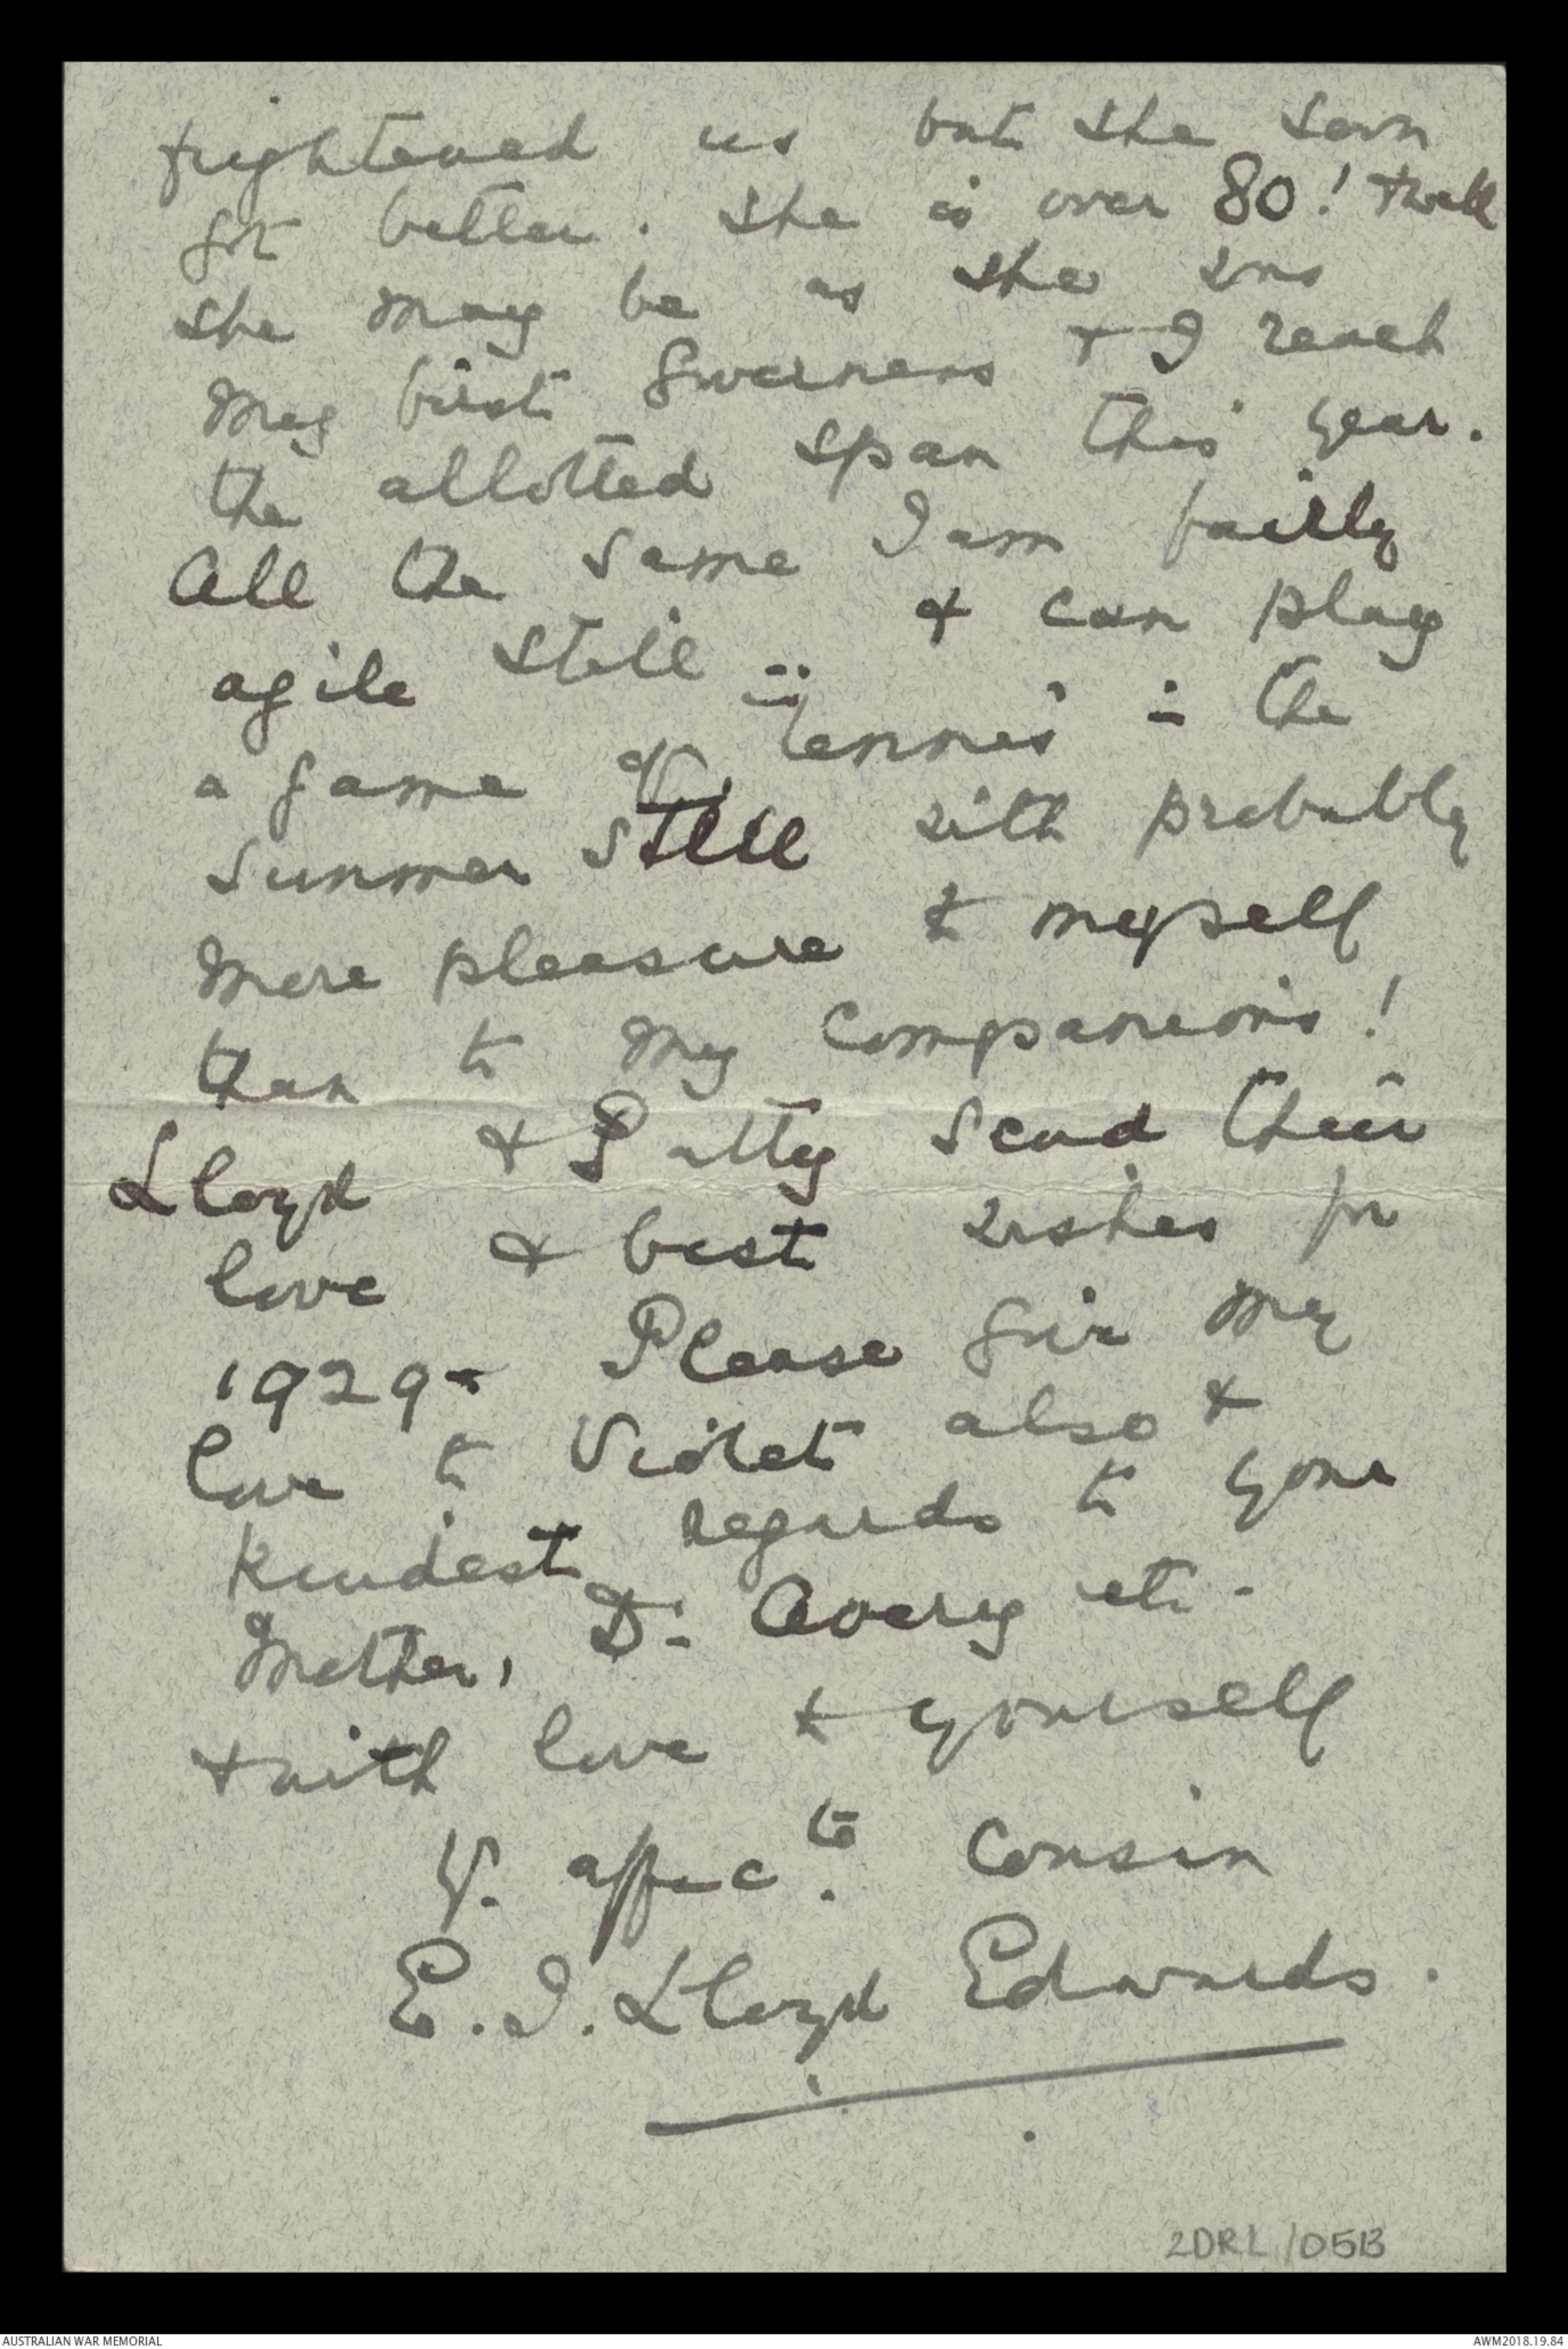 frightened us but she soon
got better. She is over 80! + well
she may be as she was
my first Governess + I reach
the allotted span this year.
All the same I am fairly
agile still & can play
a game of tennis in the
summer still with probably
more pleasure to myself
than to my companions!
Lloyd & Patty send their
love & best wishes for
1929 - Please give my
love to Violet also +
kindest regards to your
Mother, Dr. Avery etc -
+ with love to yourself
Yr. affec.te Cousin
E. I. Lloyd Edwards.
2DRL/0513
AUSTRALIAN WAR MEMORIAL
AWM2018.19.84